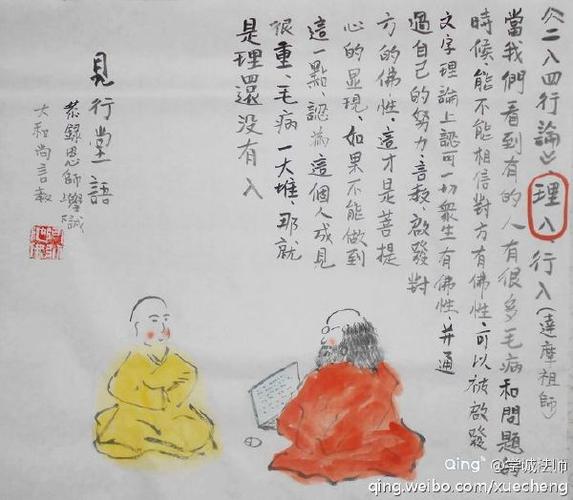 《二入四行論》、理入、行入(達摩祖師)
當我們看到有的人有很多毛病和問題的
時候能不能相信對方有佛性,可以被啟發
文字理論上認可一切衆生有佛性,并通
過自己的努力、言教、啟發對
方的佛性,這才是菩提
心的显現。如果不能做到
這一點、認為這個人成見
很重、毛病一大堆、那就
是理還没有入
見行堂語
恭錄恩師學誠
大和尚言教
Qing @学诚法师
qing.weibo.com/xuecheng